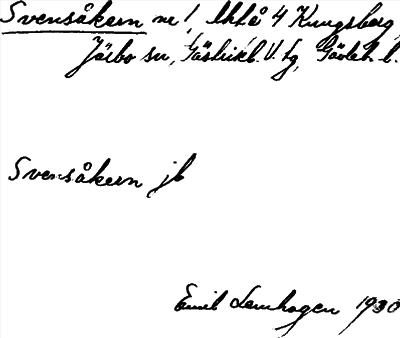 Svensåkern nr 1, Uhlå 4 Kungsberg,
Järbo sn, Gästrikl. V. tg, Gävleb. l.
Svensåkern jb
Emil Lenhagen 1930